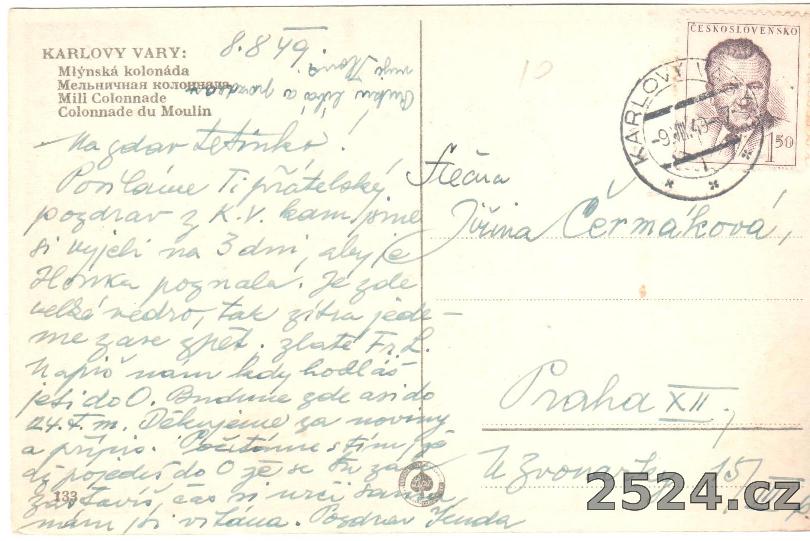 KARLOVY VARY:
Mlýnská kolonáda
Мельничная колоннада
Mill Colonnade
Colonnade du Moulin
8.8 49.
Nazdar Letinko!
Posíláme Ti přátelský
pozdrav z K.V. kam jsme
si vyjeli na 3 dni, aby je
Honka poznala. Je zde
velké vedro, tak zítra jede-
me zase zpět. zlaté Fr. L.
Napiš nám kdy hodláš
jeti do O. Budeme zde asi do
24. t. m. Děkujeme za noviny
a přípis. Počítáme s tím, že
až pojedeš do O že se tu za
stavíš, čas si urči sama
nám jsi vítána. Pozdrav Jenda
133
ČESKOSLOVENSKO
1 50
KARLOVY VARY
-9.VIII.49-
Slečna
Jiřina Čermáková,
Praha XII,
U Zvonařky 15/
2524.cz